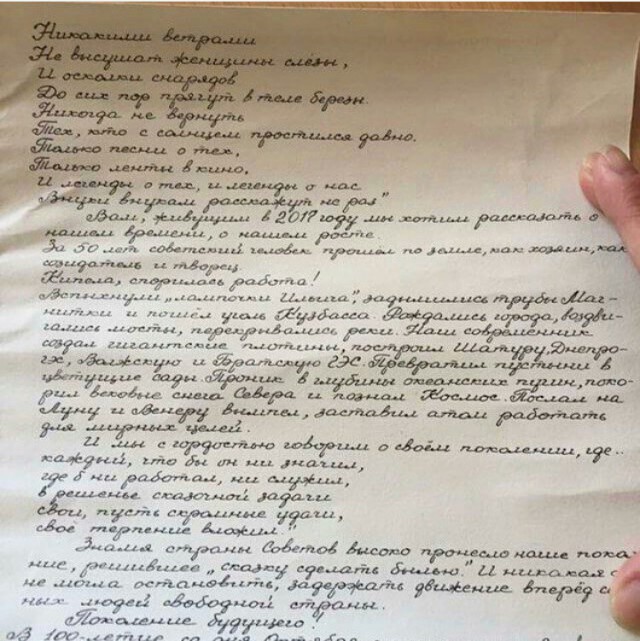 Никакими ветрами
Не высушат женщины слёзы,
И осколки снарядов
До сих пор прячут в теле берёзы.
Никогда не вернуть
Тех, кто с солнцем простился давно.
Только песни о тех,
Только ленты в кино,
И легенды о тех, и легенды о нас
Внуки внукам расскажут не раз"
Вам, живущим в 2017 году мы хотим рассказать о
нашем времени, о нашем росте.
За 50 лет советский человек прошёл по земле, как хозяин, как
созидатель и творец.
Кипела, спорилась работа!
Вспыхнули „лампочки Ильича", задымились трубы Маг-
нитки и пошёл уголь Кузбасса. Рождались города, воздви-
гались мосты, перекрывались реки. Наш современник
создал гигантские плотины, построил Шатуру, Днепро-
гэс, Волжскую и Братскую ГЭС. Превратил пустыни в
цветущие сады. Проник в глубины океанских пучин, поко-
рил вековые снега Севера и познал Космос. Послал на
Луну и Венеру вымпел, заставил атом работать
для мирных целей.
И мы с гордостью говорим о своём поколении, где..
каждый, что бы он ни значил,
где б ни работал, ни служил,
в решенье сказочной задачи
свои, пусть скромные удачи,
своё терпение вложил."
Знамя страны Советов высоко пронесло наше поко
ние, решившее „сказку сделать былью." И никакая с
не могла остановить, задержать движение вперёд
ных людей свободной страны.
Поколение будущего!
В 100-летие со дня Октября